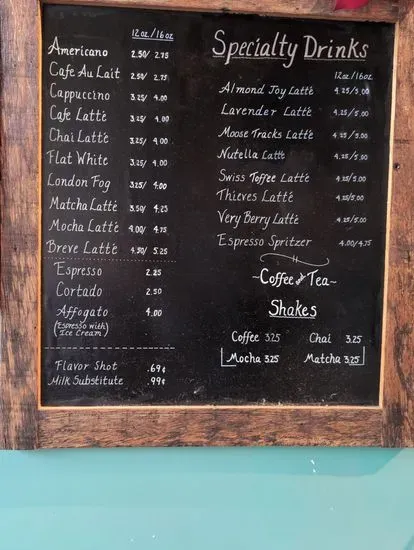 12oz/16oz
Americano 2.50/ 2.75
Cafe Au Lait 2.50/ 2.75
Cappuccino 3.25/ 4.00
Cafe Latté 3.25/ 4.00
Chai Latté 3.25/ 4.00
Flat White 3.25/ 4.00
London Fog 3.25/ 4.00
Matcha Latté 3.50/ 4.25
Mocha Latté 4.00/ 4.75
Breve Latté 4.50/ 5.25
Espresso 2.25
Cortado 2.50
Affogato 4.00
(Espresso with)
(Ice Cream)
Flavor Shot .69¢
Milk Substitute .99¢
Specialty Drinks
12oz/16oz
Almond Joy Latté 4.25/5.00
Lavender Latté 4.25/5.00
Moose Tracks Latté 4.25/5.00
Nutella Latté 4.25/5.00
Swiss Toffee Latté 4.25/5.00
Thieves Latté 4.25/5.00
Very Berry Latté 4.25/5.00
Espresso Spritzer 4.00/4.75
~Coffee and Tea~
Shakes
Coffee 3.25 Chai 3.25
Mocha 3.25 Matcha 3.25